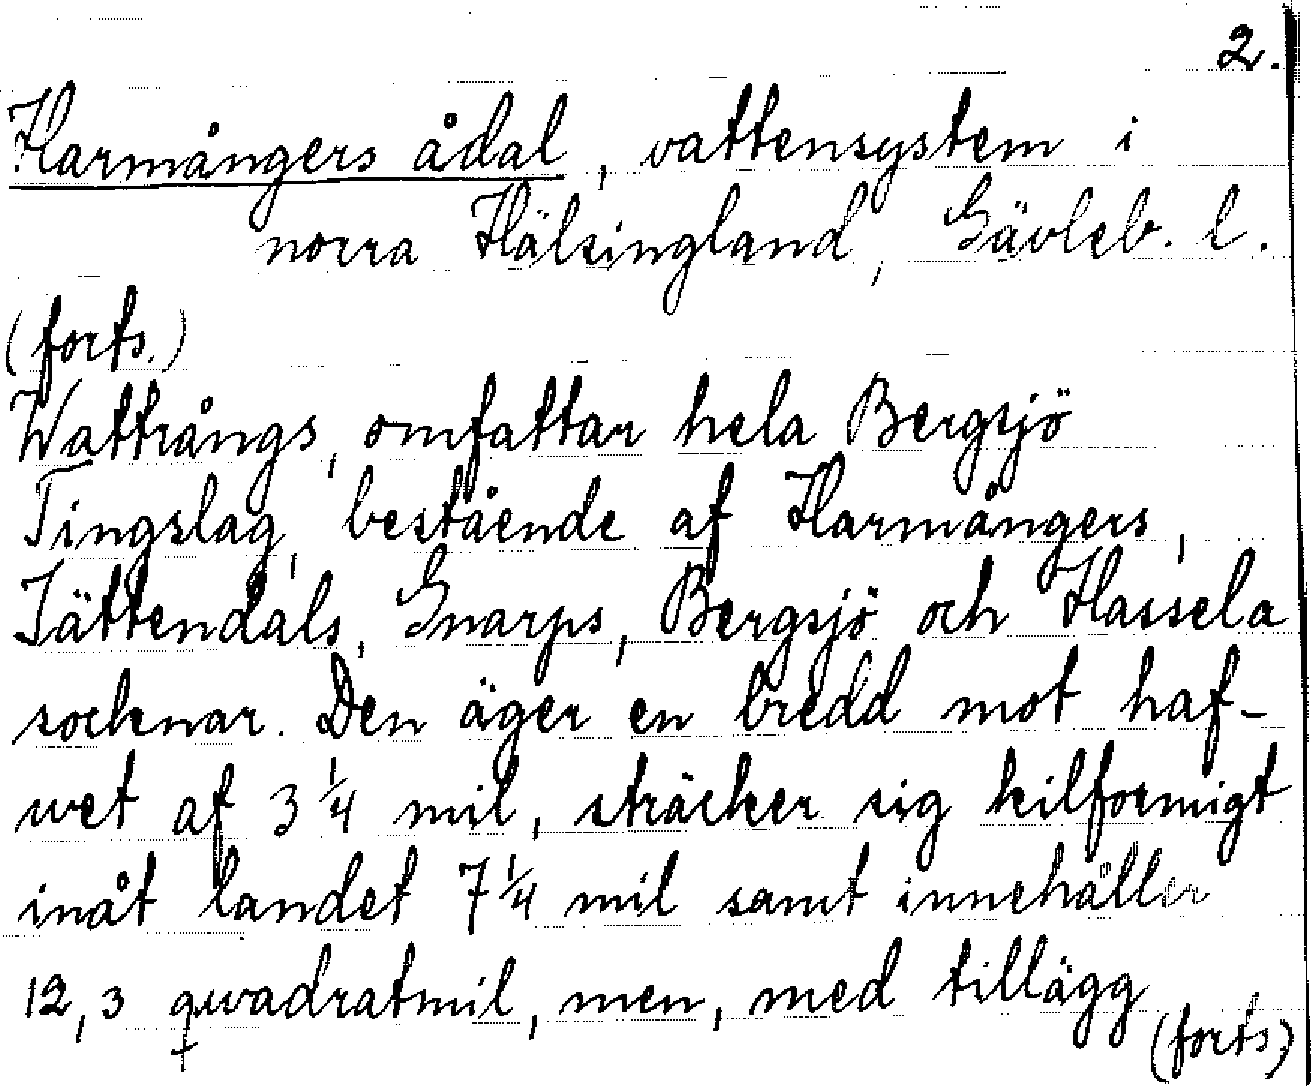 2.
Harmångers ådal, vattensystem i
norra Hälsingland, Gävleb. l.
(forts.)
Wattrångs, omfattar hela Bergsjö
Tingslag, bestående af Harmångers,
Jättendals, Gnarps, Bergsjö och Hassela
socknar. Den äger en bredd mot haf-
wet af 3 1/4 mil, sträcker sig kilformigt
inåt landet 7 1/4 mil samt innehåller
12,3 qwadratmil, men, med tillägg
(forts.)